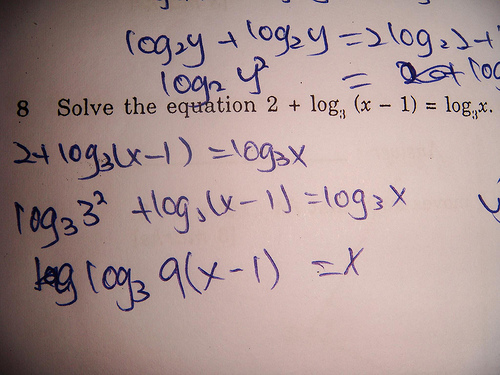 log₂y + log₂y = 2log₂2 +
log₂ y² = log
8 Solve the equation 2 + log₃ (x − 1) = log₃x.
2 + log₃(x−1) = log₃x
log₃3² + log₃(x−1) = log₃x
log₃ 9(x−1) = x